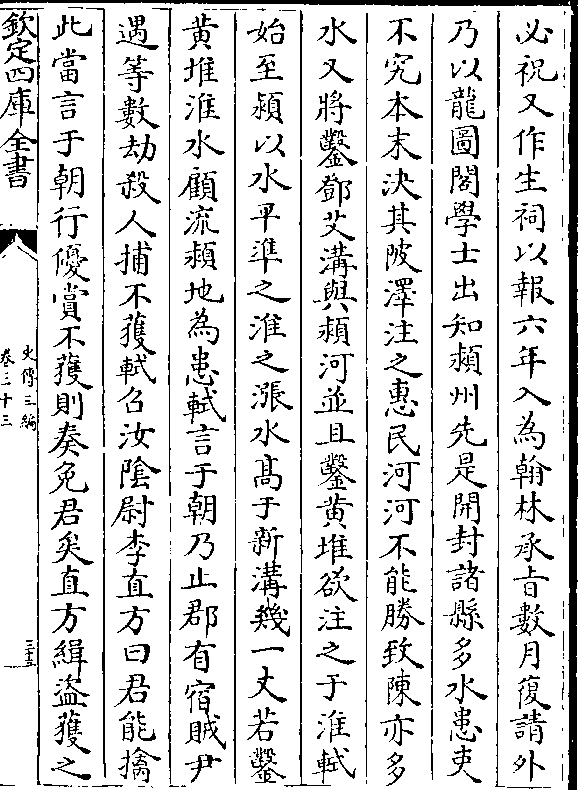 必祝又作生祠以報六年入為翰林承㫖數月復請外
乃以龍圖閣學士出知潁州先是開封諸縣多水患吏
不究本末決其陂澤注之惠民河河不能勝致陳亦多
水又將鑿鄧艾溝與潁河並且鑿黄堆欲注之于淮軾
始至潁以水平準之淮之漲水髙于新溝幾一丈若鑿
黄堆淮水顧流潁地為患軾言于朝乃止郡有宿賊尹
遇等數劫殺人捕不獲軾召汝陰尉李直方曰君能擒
此當言于朝行優賞不獲則奏免君矣直方緝盜獲之
欽定四庫全書
史傳三編
卷三十三
三十五